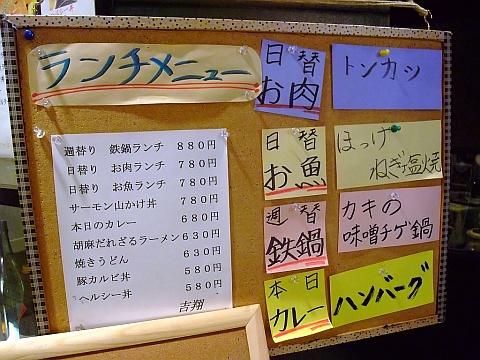 ランチメニュー
週替り 鉄鍋ランチ 880円
日替り お肉ランチ 780円
日替り お魚ランチ 780円
サーモン山かけ丼 780円
本日のカレー 680円
胡麻だれざるラーメン 630円
焼きうどん 630円
豚カルビ丼 580円
ヘルシー丼 580円
吉翔
日替
お肉
トンカツ
日替
お魚
ほっけ
ねぎ塩焼
週替
鉄鍋
カキの
味噌チゲ鍋
本日
カレー
ハンバーグ